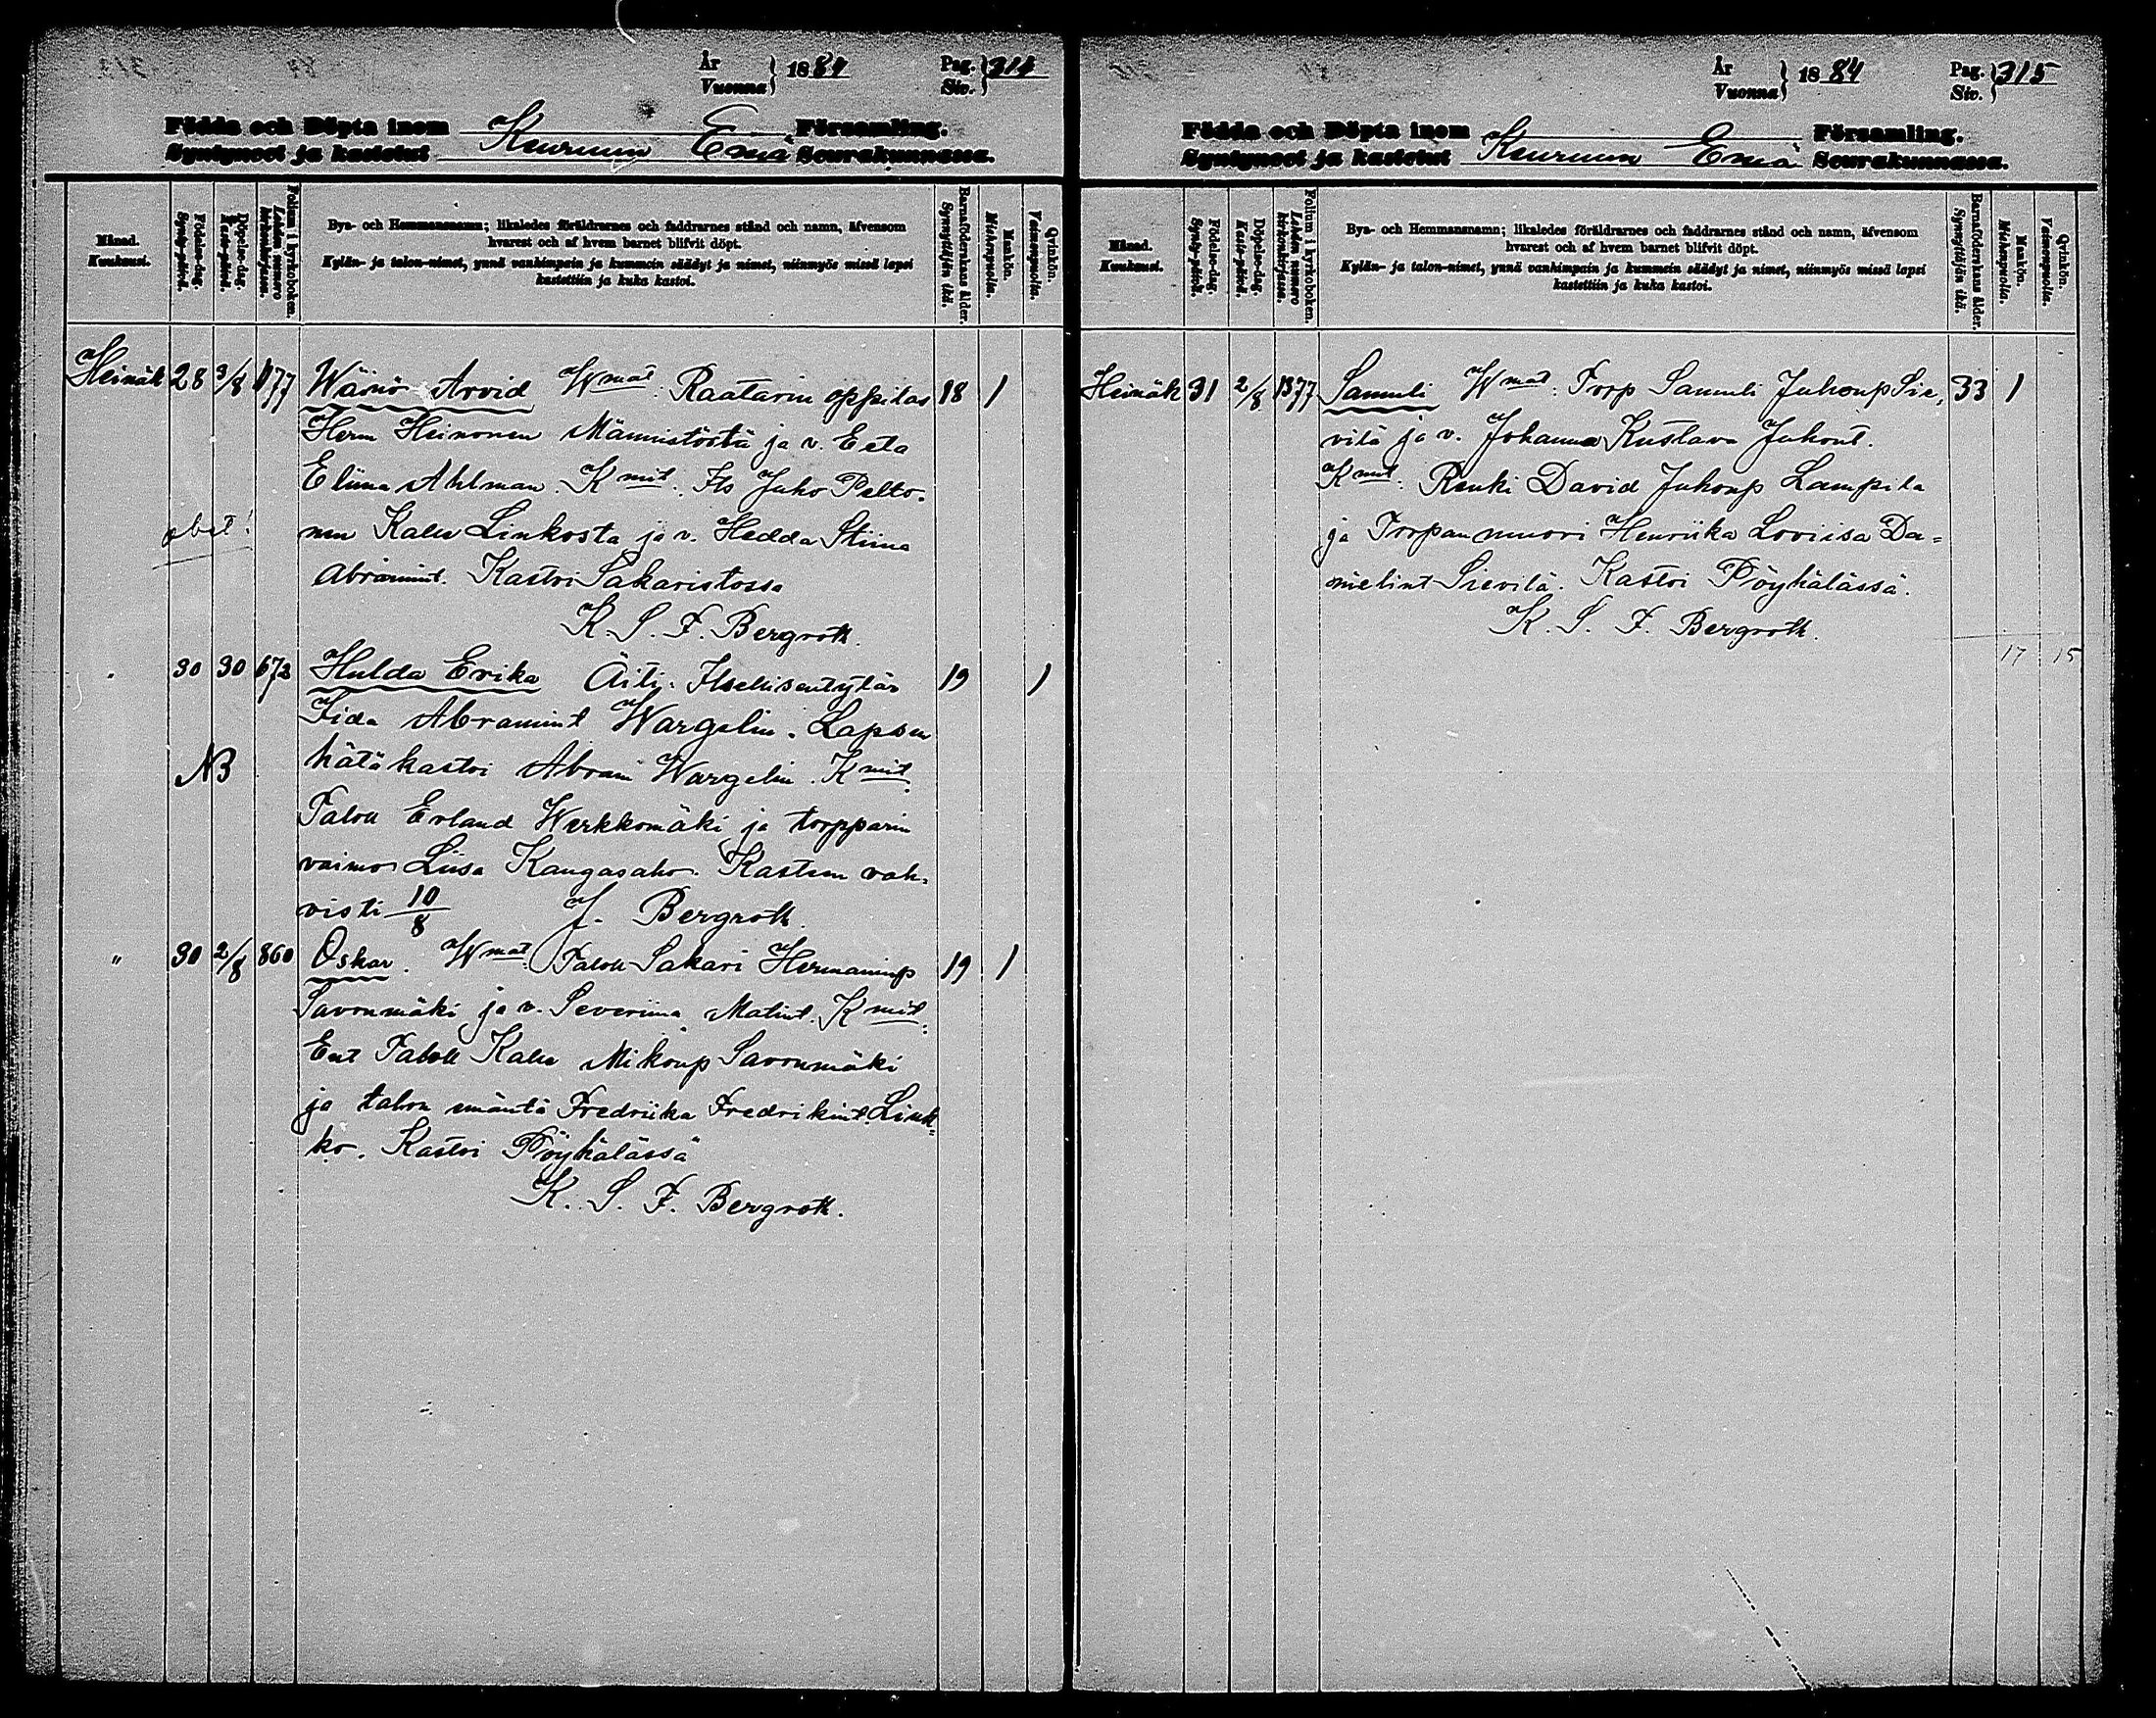 År
Vuonna } 1884 Pag.
Siv. } 314
Födda och Döpta inom Församling.
Syntyneet ja kastetut Keuruun Emä Seurakunnassa.
Månad.
Kuukausi.
Födelse-dag.
Synty-päivä.
Döpelse-dag.
Kaste-päivä.
Folium i kyrkoboken.
Lehden numero
kirkonkirjassa.
Bya- och Hemmansnamn; likaledes föräldrarnes och faddrarnes stånd och namn, äfvensom
hvarest och af hvem barnet blifvit döpt.
Kylän- ja talon-nimet, ynnä vanhimpain ja kummein säädyt ja nimet, niinmyös missä lapsi
kastettiin ja kuka kastoi.
Barnaföderskans ålder.
Synnyttäjän ikä.
Mankön.
Miehenpuolia.
Qvinkön.
Vaimonpuolia.
Heinäk 28 3/8 1177 Wäinö Arvid Wmat: Raatarin oppilas 18 1
Herm Heinonen Männistöstä ja v. Eeta
Eliina Ahlman. Kmit: Its Juho Pelto-
nen Kalle Linkosta ja v. Hedda Stiina
obet!
Abramint. Kastoi Sakaristossa
K. S. F. Bergroth.
" 30 30 672 Hulda Erika Äiti: Itsellisentytär 19 1
Iida Abramint Wargelin. Lapsen
NB hätäkastoi Abram Wargelin. Kmit.
Taloll Erland Werkkomäki ja torpparin
vaimo Liisa Kangasaho. Kasteen vah-
visti 10/8 J. Bergroth.
" 30 2/8 860 Oskar. Wmat: Taloll Sakari Hermaninp 19 1
Savonmäki ja v. Severiina Matint. Kmit:
Ent Taloll Kalle Mikonp Savonmäki
ja talon emäntä Fredriika Fredrikint. Link-
ko. Kastoi Pöyhälässä
K. S. F. Bergroth.
År
Vuonna } 1884 Pag.
Siv. } 315
Födda och Döpta inom Församling.
Syntyneet ja kastetut Keuruun Emä Seurakunnassa.
Månad.
Kuukausi.
Födelse-dag.
Synty-päivä.
Döpelse-dag.
Kaste-päivä.
Folium i kyrkoboken.
Lehden numero
kirkonkirjassa.
Bya- och Hemmansnamn; likaledes föräldrarnes och faddrarnes stånd och namn, äfvensom
hvarest och af hvem barnet blifvit döpt.
Kylän- ja talon-nimet, ynnä vanhimpain ja kummein säädyt ja nimet, niinmyös missä lapsi
kastettiin ja kuka kastoi.
Barnaföderskans ålder.
Synnyttäjän ikä.
Mankön.
Miehenpuolia.
Qvinkön.
Vaimonpuolia.
Heinäk 31 2/8 1377 Samuli Wmat: Torp Samuli Juhonp Sie- 33 1
vilä ja v. Johanna Kustava Juhont.
Kmit: Renki David Juhonp Lampila
ja Torpan muori Henriika Loviisa Da-
nielint Sievilä. Kastoi Pöyhälässä.
K. S. F. Bergroth.
17 15